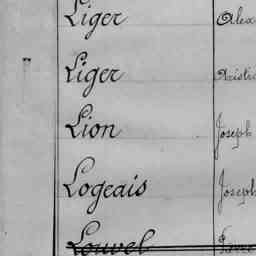 Liger Alex
Liger Aristi
Lion Joseph
Logeais Joseph
Louvel